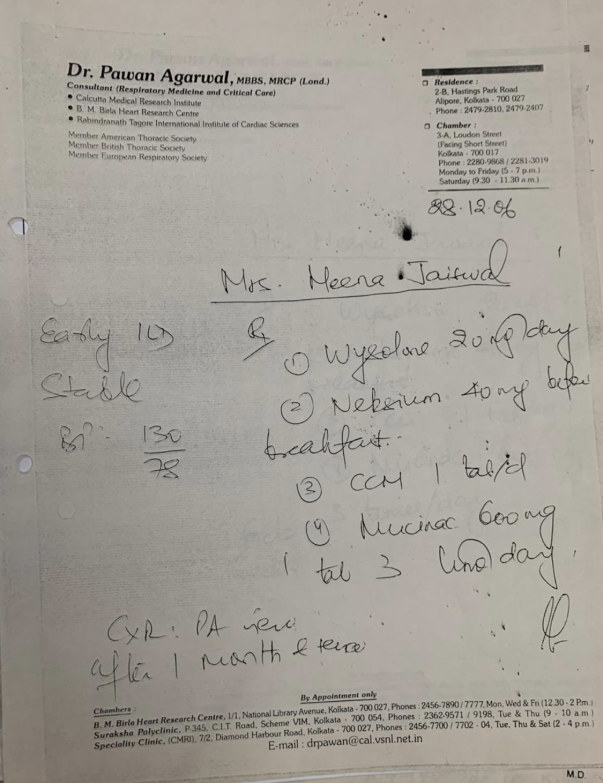 Dr. Pawan Agarwal, MBBS, MRCP (Lond.)
Consultant (Respiratory Medicine and Critical Care)
• Calcutta Medical Research Institute
• B. M. Birla Heart Research Centre
• Rabindranath Tagore International Institute of Cardiac Sciences
Member American Thoracic Society
Member British Thoracic Society
Member European Respiratory Society
Residence :
2-B, Hastings Park Road
Alipore, Kolkata - 700 027
Phone : 2479-2810, 2479-2407
Chamber :
3-A, Loudon Street
(Facing Short Street)
Kolkata - 700 017
Phone : 2280-9868 / 2281-3019
Monday to Friday (5 - 7 p.m.)
Saturday (9.30 - 11.30 a.m.)
28.12.06
Mrs. Meena Jaiswal
Early ILD
Stable
BP: 130/78
Rx
① Wysolone 20 mg/day
② Neksium 40 mg before
breakfast.
③ CCM 1 tab/d
④ Mucinac 600 mg
1 tab 3 day.
CXR: PA view
after 1 month &
By Appointment only
Chambers :
B. M. Birla Heart Research Centre, 1/1, National Library Avenue, Kolkata - 700 027, Phones : 2456-7890 / 7777, Mon, Wed & Fri (12.30 - 2 Pm.)
Suraksha Polyclinic, P-345, C.I.T. Road, Scheme VIM, Kolkata - 700 054, Phones : 2362-9571 / 9198, Tue & Thu (9 - 10 a.m.)
Speciality Clinic, (CMRI), 7/2, Diamond Harbour Road, Kolkata - 700 027, Phones : 2456-7700 / 7702 - 04, Tue, Thu & Sat (2 - 4 p.m.)
E-mail : drpawan@cal.vsnl.net.in
M.D.